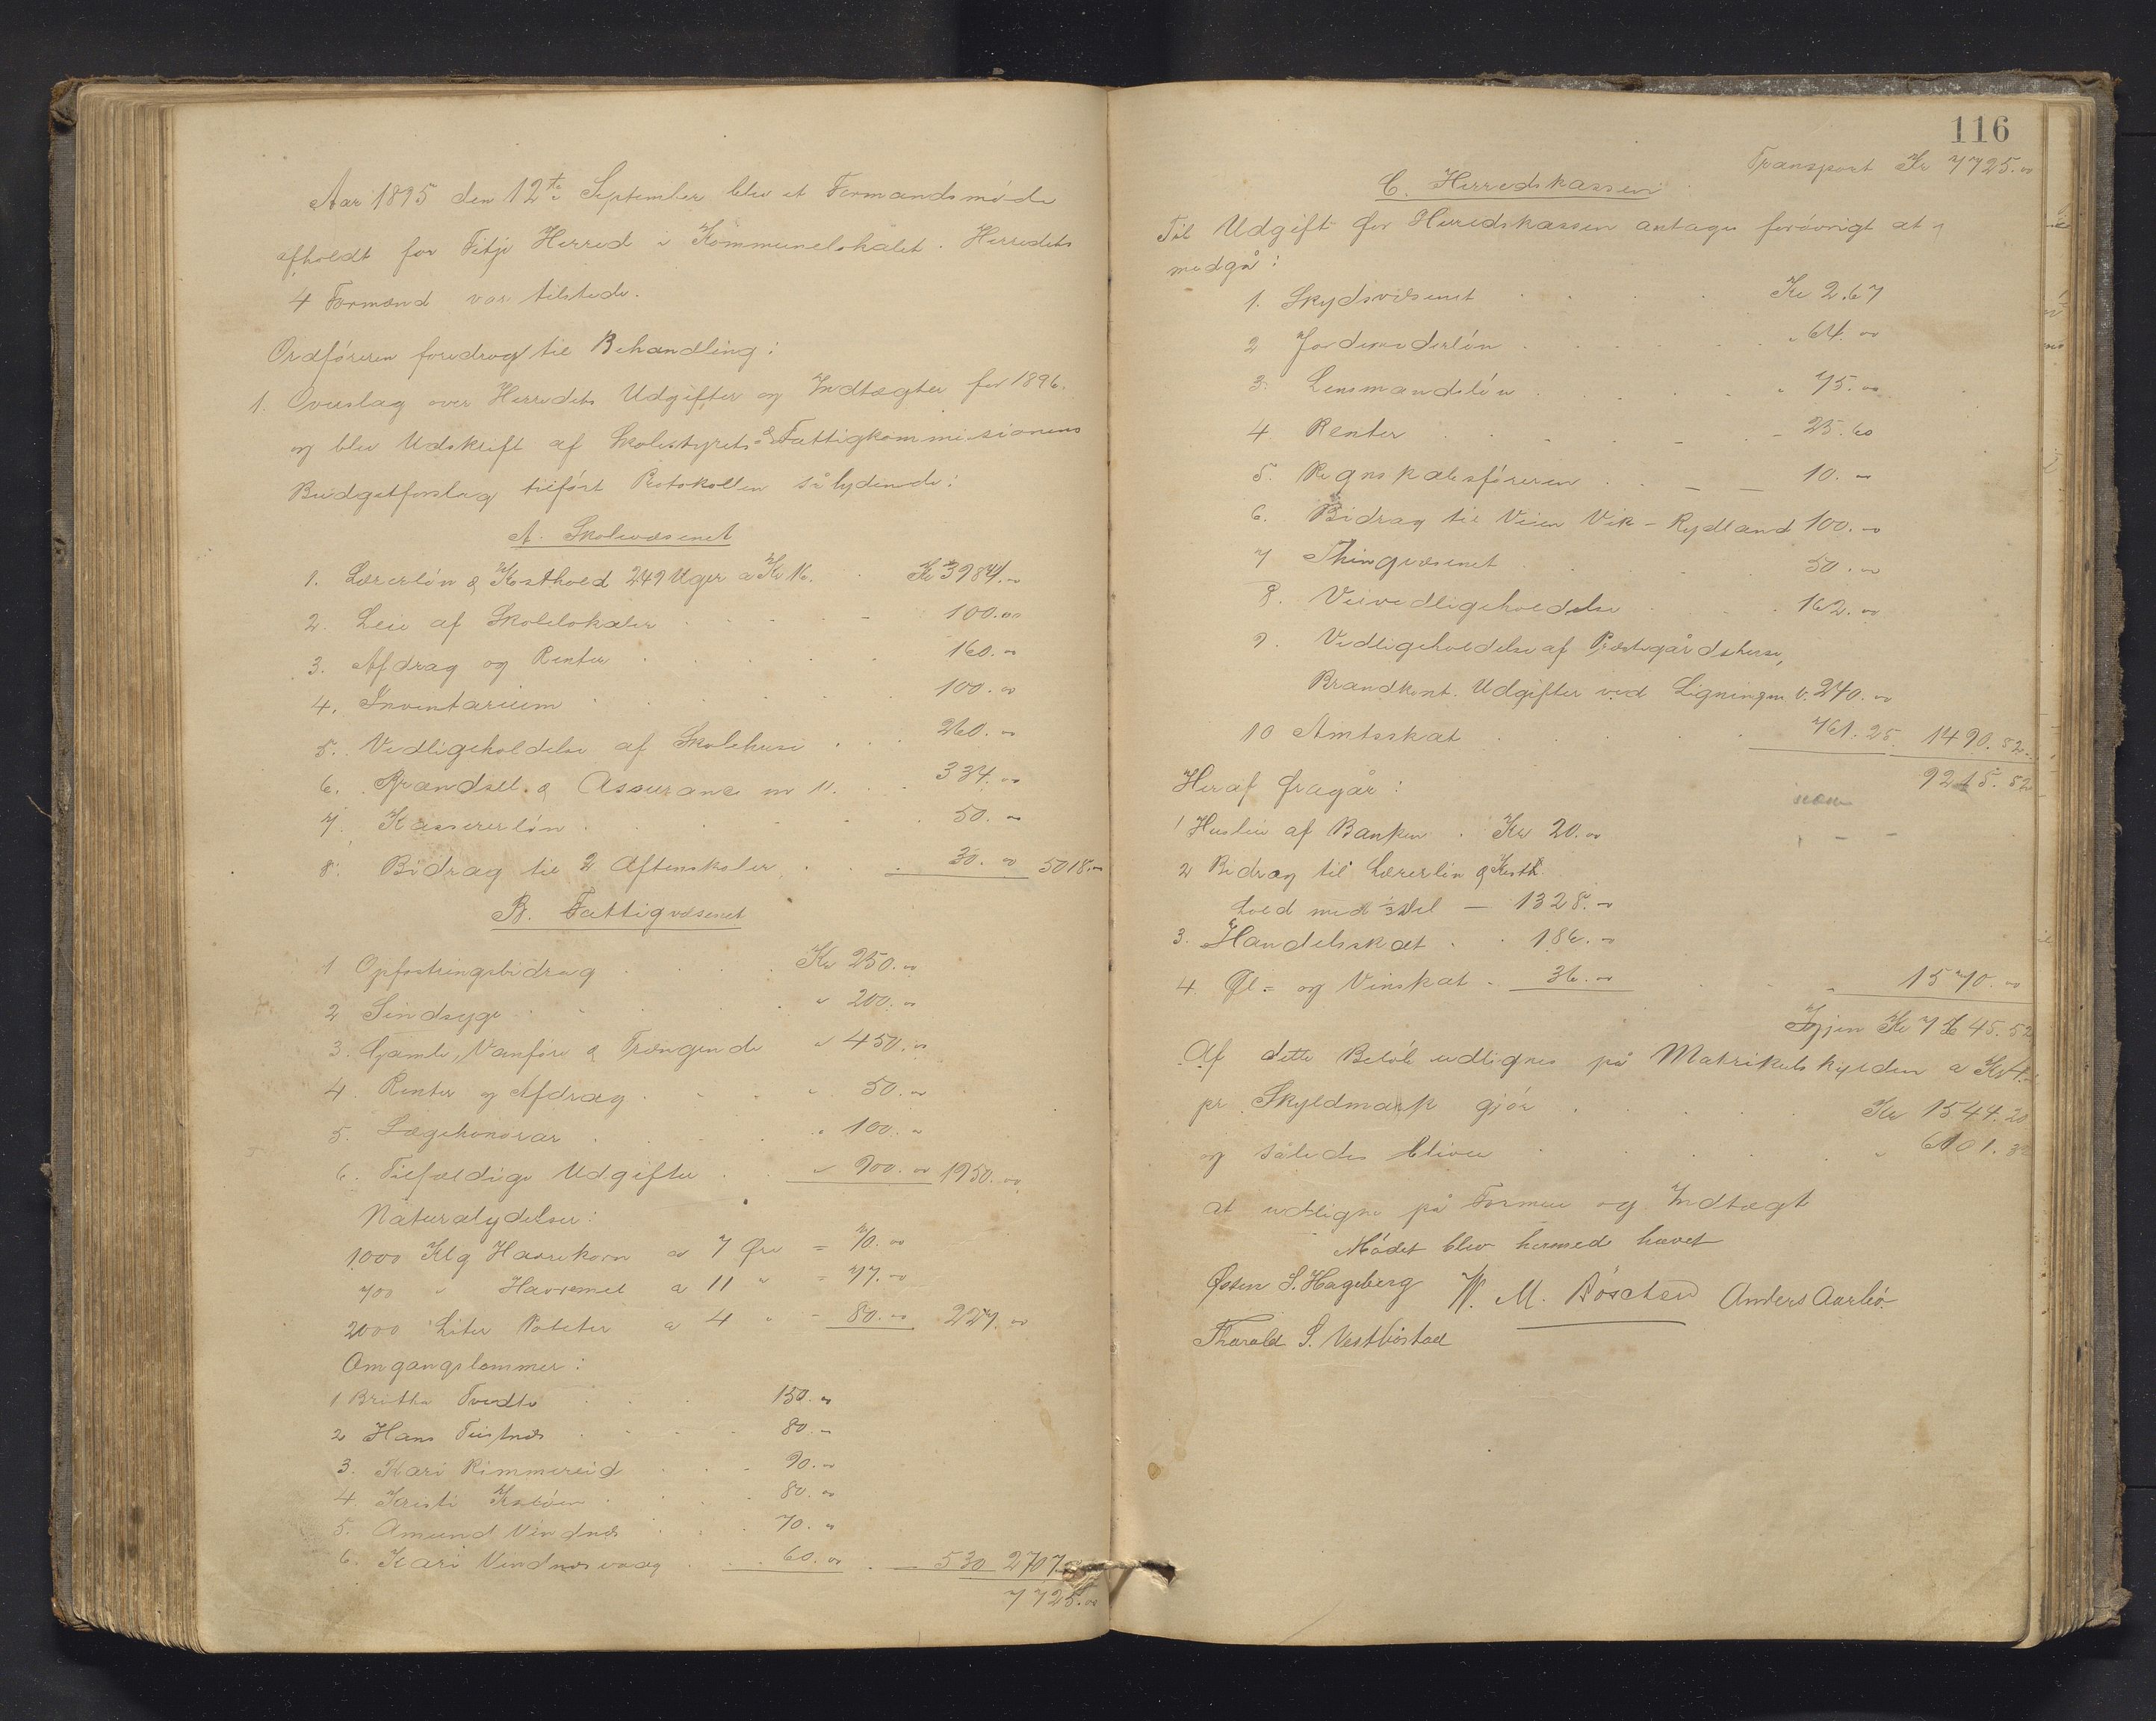 Aar 1895 den 12te September blev et Formandsmøde
afholdt for Fitje Herred i Kommunelokalet. Herredets
4 Formænd var tilstede.
Ordføreren foredrog til Behandling:
1. Overslag over Herredets Udgifter og Indtægter for 1896.
og blev Udskrift af Skolestyrets & Fattigkommisionens
Budgetforslag tilført Protokollen så lydende:
A. Skolevæsenet
1. Lærerløn & Kosthold 249 Uger a Kr 16. Kr 3984.00
2. Leie af Skolelokaler 100.00
3. Afdrag og Renter 160.00
4. Inventarium 100.00
5. Vedligeholdelse af Skolehuse 260.00
6. Brændsel & Assurance m v. 334.00
7. Kassererløn 50.00
8. Bidrag til 2 Aftenskoler 30.00 5018.00
B. Fattigvæsenet
1 Opfostringsbidrag Kr 250.00
2 Sindsyge " 200.00
3. Gamle, Vanføre & Trængende " 450.00
4. Renter og Afdrag " 50.00
5. Lægehonorar " 100.00
6. Tilfældige Udgifter " 900.00 1950.00
Naturalydelser:
1000 Klg Havrekorn a 7 Øre = 70.00
700 " Havremel a 11 " = 77.00
2000 Liter Poteter a 4 " = 80.00 227.00
Omgangslemmer:
1 Britha Tvedte 150.00
2 Hans Teistnes 80.00
3. Kari Rimmereid 90.00
4. Kristi 80.00
5. Amund Vindnes 70.00
6. Kari Vindnesvaag 60.00 530 2707.00
7725.00
116
Transport Kr 7725.00
C. Herredskassen
Til Udgift for Herredskassen antages forøvrigt at
medgå:
1. Skydsvæsenet Kr 2.67
2 Jordemoderløn " 64.00
3. Lensmandsløn " 75.00
4 Renter 25.60
5. Regnskabsføreren 10.00
6. Bidrag til Veien Vik - Rydland 100.00
7 Thingvæsenet 50.00
8. Veivedligeholdelse 162.00
9. Vedligeholdelse af Præstegårdshuse,
Brandkont. Udgifter ved Ligningen 240.00
10 Amtsskat 761.25 1490.52
9215.52
Heraf fragår:
1 Husleie af Banken Kr 20.00
2 Bidrag til Lærerløn & Kost
hold med 1/3 Del — 1328.00
3. Handelsskat 186.00
4. Øl- og Vinskat 36.00 1570.00
Igjen Kr 7645.52
Af dette Beløb udlignes på Matrikulskylden a Kr 4.
pr Skyldmark gjør Kr 1544.20
og således bliver " 6101.32
at udligne på Formue og Indtægt
Mødet blev hermed hævet
Østen S. Hageberg W. M. Anders Aarbø
Tharald S. Vestbøstad